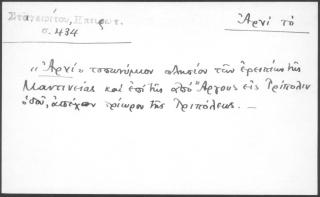 Σταγειρίτου, Ηπειρωτ.
σ. 434
Ἀρνὶ τὸ
"Ἀρνὶ" τοπωνύμιον πλησίον τῶν ἐρειπίων τῆς
Μαντινείας καὶ ἐπὶ τῆς ἀπὸ Ἄργους εἰς Τρίπολιν
ὁδοῦ, ἀπέχον τρίωρον τῆς Τριπόλεως. —